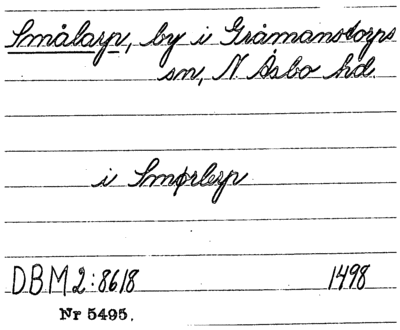 Smålarp, by i Gråmanstorps
sn, N Åsbo hd.
i Smørlerp
DBM 2:8618 1498
Nr 5495.